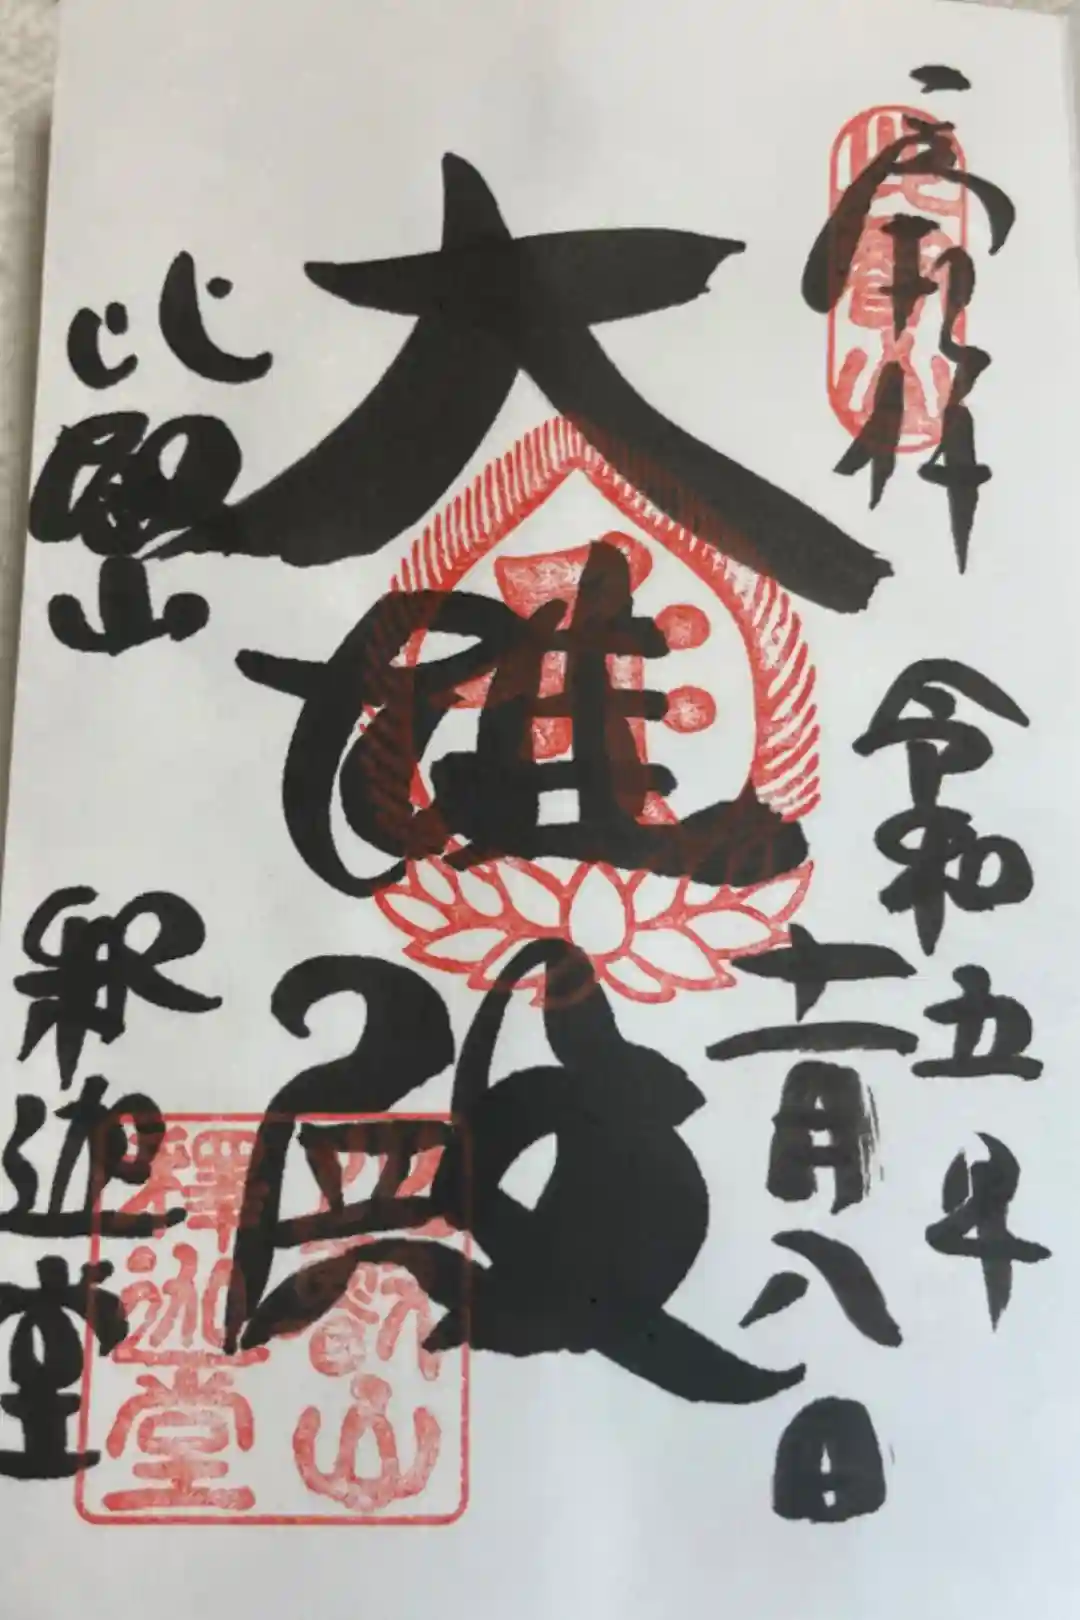 奉拝 令和五年
十一月八日
大雄殿
比叡山 釈迦堂
比叡山
釋迦堂